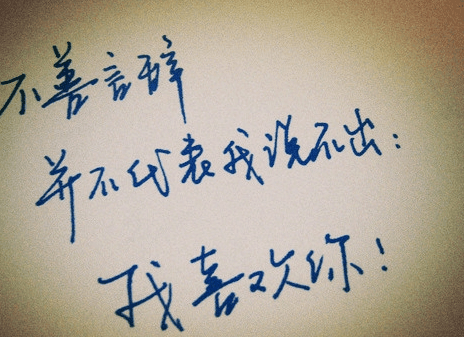 不善言辞
并不代表我说不出:
我喜欢你!